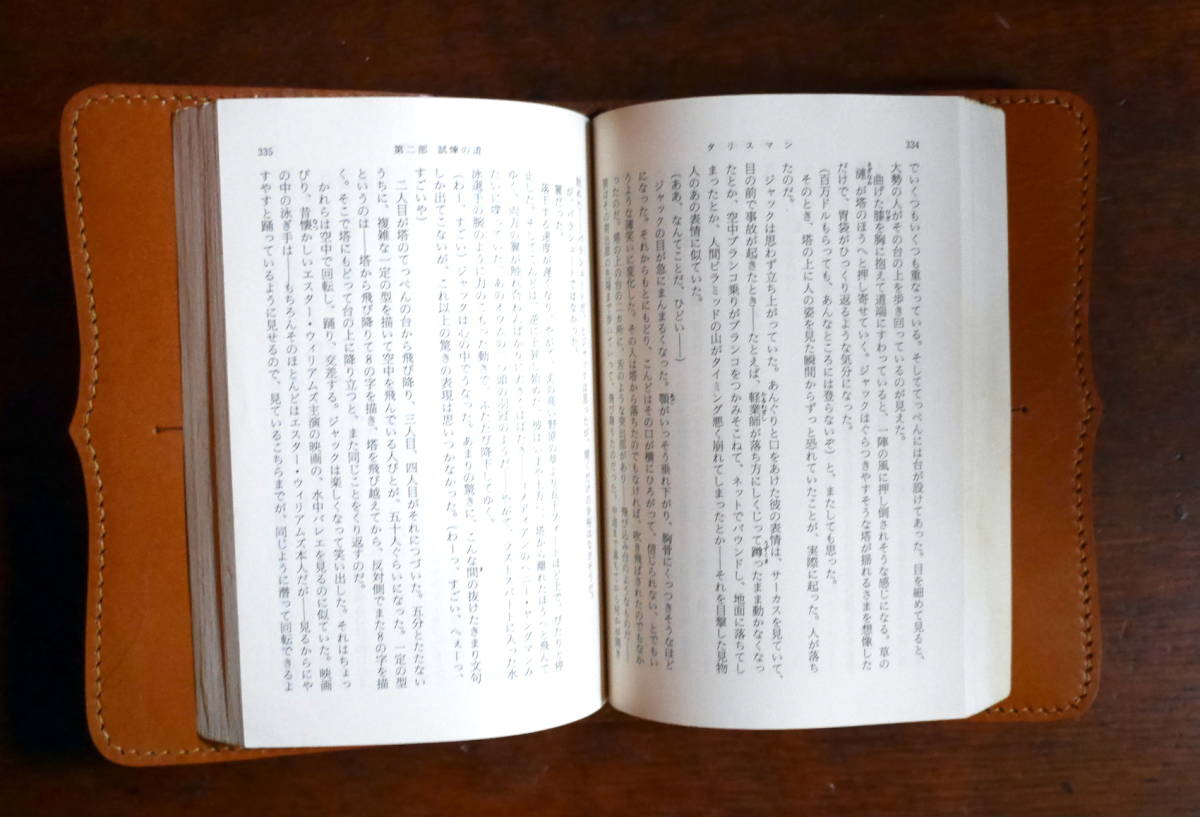 334
タリスマン
でいくつもいくつも重なっている。そしててっぺんには台が設けてあった。目を細めて見ると、
大勢の人がその台の上を歩き回っているのが見えた。
曲げた膝を胸に抱えて道端にすわっていると、一陣の風に押し倒されそうな感じになる。草の
漣が塔のほうへと押し寄せていく。ジャックはぐらつきやすそうな塔が揺れるさまを想像した
だけで、胃袋がひっくり返るような気分になった。
(百万ドルもらっても、あんなところには登らないぞ)と、またしても思った。
そのとき、塔の上に人の姿を見た瞬間からずっと恐れていたことが、実際に起こった。人が落ち
たのだ。
ジャックは思わず立ち上がっていた。あんぐりと口をあけた彼の表情は、サーカスを見ていて、
目の前で事故が起きたとき――たとえば、軽業師が落ち方にしくじって蹲ったまま動かなくなっ
たとか、空中ブランコ乗りがブランコをつかみそこねて、ネットでバウンドし、地面に落ちてし
まったとか、人間ピラミッドの山がタイミング悪く崩れてしまったとか――それを目撃した見物
人のあの表情に似ていた。
(ああ、なんてことだ、ひどい――)
ジャックの目が急にまんまるくなった。顎がいっそう垂れ下がり、胸骨にくっつきそうなほど
になった。それからもとにもどり、こんどはその口が横にひろがって、信じられない、とでもい
うような薄笑いに変化した。その人は塔から落ちたのでもなければ、吹き飛ばされたのでもなか
ったのだ。塔の上の台の二カ所に、舌のような突出部があり――飛び込み台のようなものだ――
335
第二部 試煉の道
翼だった。
落下する速度が遅くなり、やがて、丈の高い野原の草より五十フィートほど上で、ぴたりと停
止した。そしてこんどは、逆に上昇し始めた。彼はいま上方へ、塔から離れたほうへと飛んで
ゆく。両方の翼が触れ合わんばかりに
泳選手の腕のように力のこもった動きで、ふたたび降下してゆく。
(わー、すごい)ジャックは心の中でうなった。あまりの驚きに、こんな間の抜けたきまり文句
しか出てこないが、これ以上の驚きの表現は思いつかなかった。(わーっ、すごい、へぇーっ、
すごいや)
二人目が塔のてっぺんの台から飛び降り、三人目、四人目がそれにつづいた。五分とたたない
うちに、複雑な一定の型を描いて空中を飛んでいる人びとが、五十人ぐらいになった。一定の型
というのは――塔から飛び降りて8の字を描き、塔を飛び越えてから、反対側でまた8の字を描
く。そこで塔にもどって台の上に降り立つと、また同じことをくり返すのだ。
かれらは空中で回転し、踊り、交差する。ジャックは楽しくなって笑い出した。それはちょっ
ぴり、昔懐かしいエスター・ウィリアムズ主演の映画の、水中バレエを見るのに似ていた。映画
の中の泳ぎ手は――もちろんそのほとんどはエスター・ウィリアムズ本人だが――見るからにや
すやすと踊っているように見せるので、見ているこちらまでが、同じように潜って回転できるよ